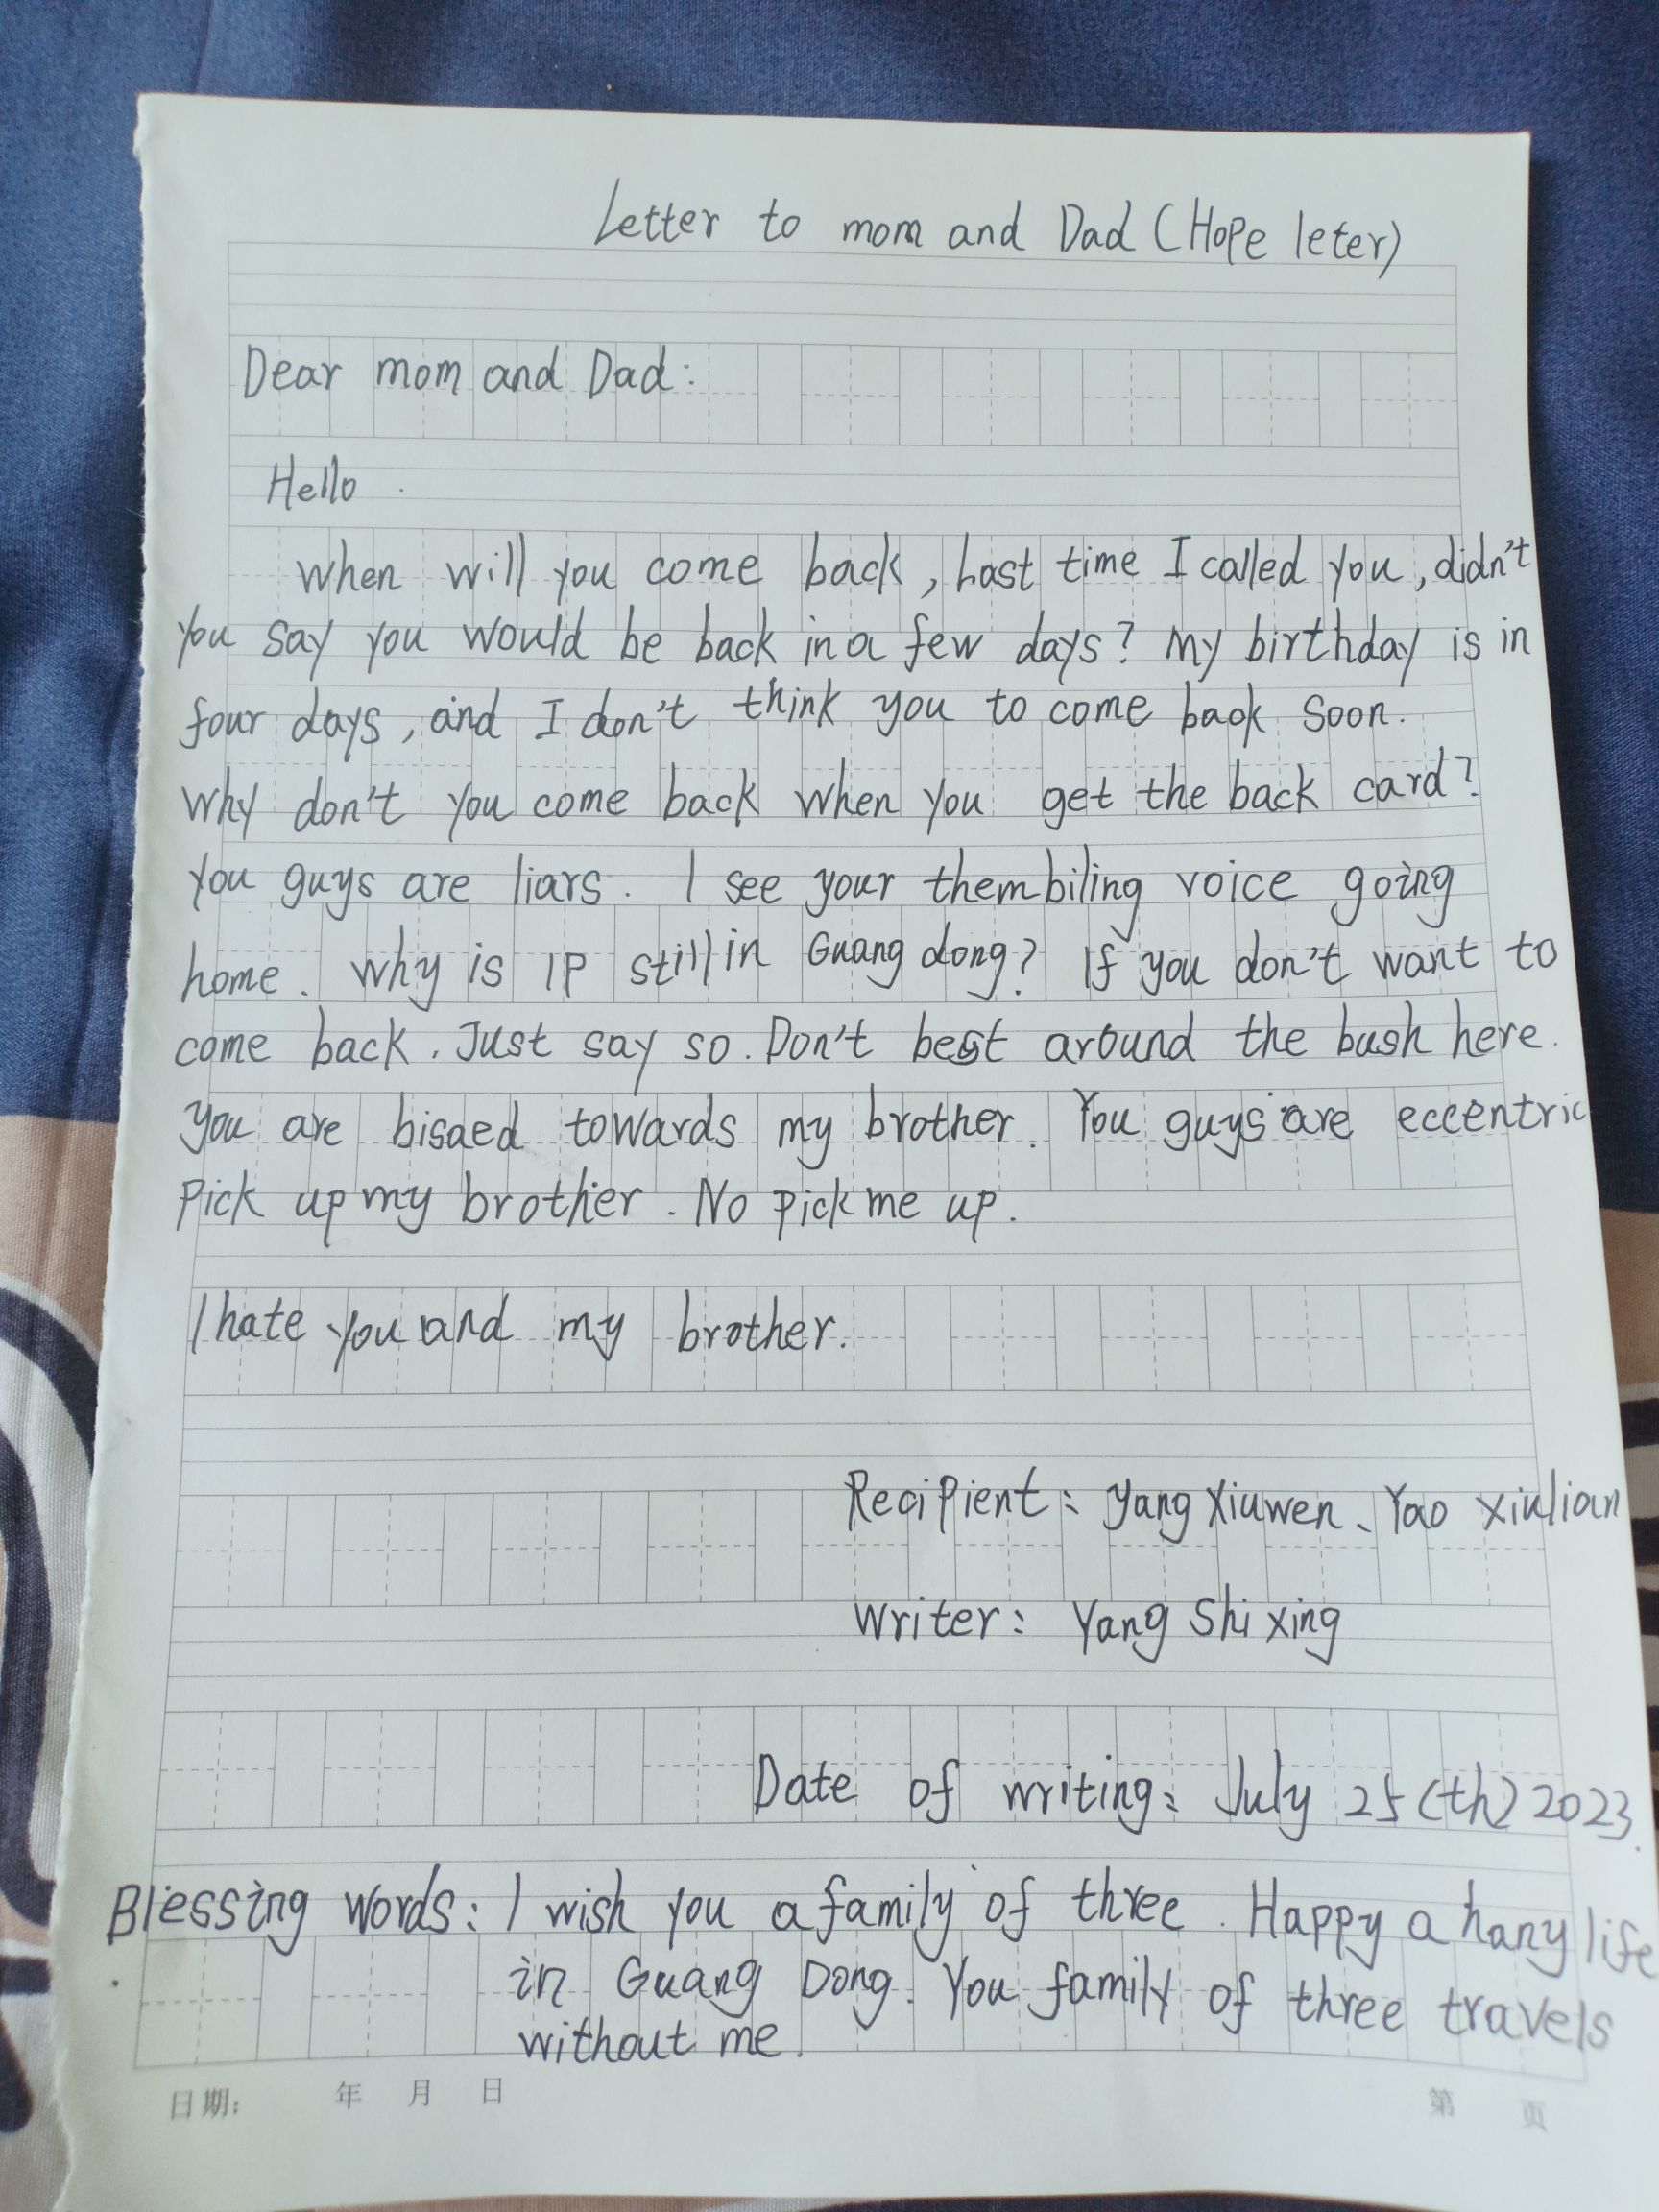 Letter to mom and Dad (Hope leter)
Dear mom and Dad:
Hello.
When will you come back, Last time I called you, didn't
you say you would be back in a few days? My birthday is in
four days, and I don't think you to come back soon.
Why don't you come back when you get the back card?
You guys are liars. I see your thembiling voice going
home. Why is IP still in Guang dong? If you don't want to
come back. Just say so. Don't beat around the bush here.
You are bisaed towards my brother. You guys are eccentric
Pick up my brother. No pick me up.
I hate you and my brother.
Recipient: Yang Xiuwen、Yao Xiulian
Writer: Yang Shi xing
Date of writing: July 25(th) 2023.
Blessing words: I wish you a family of three. Happy a hany life
in Guang Dong. You family of three travels
without me.
日期: 年 月 日
第 页